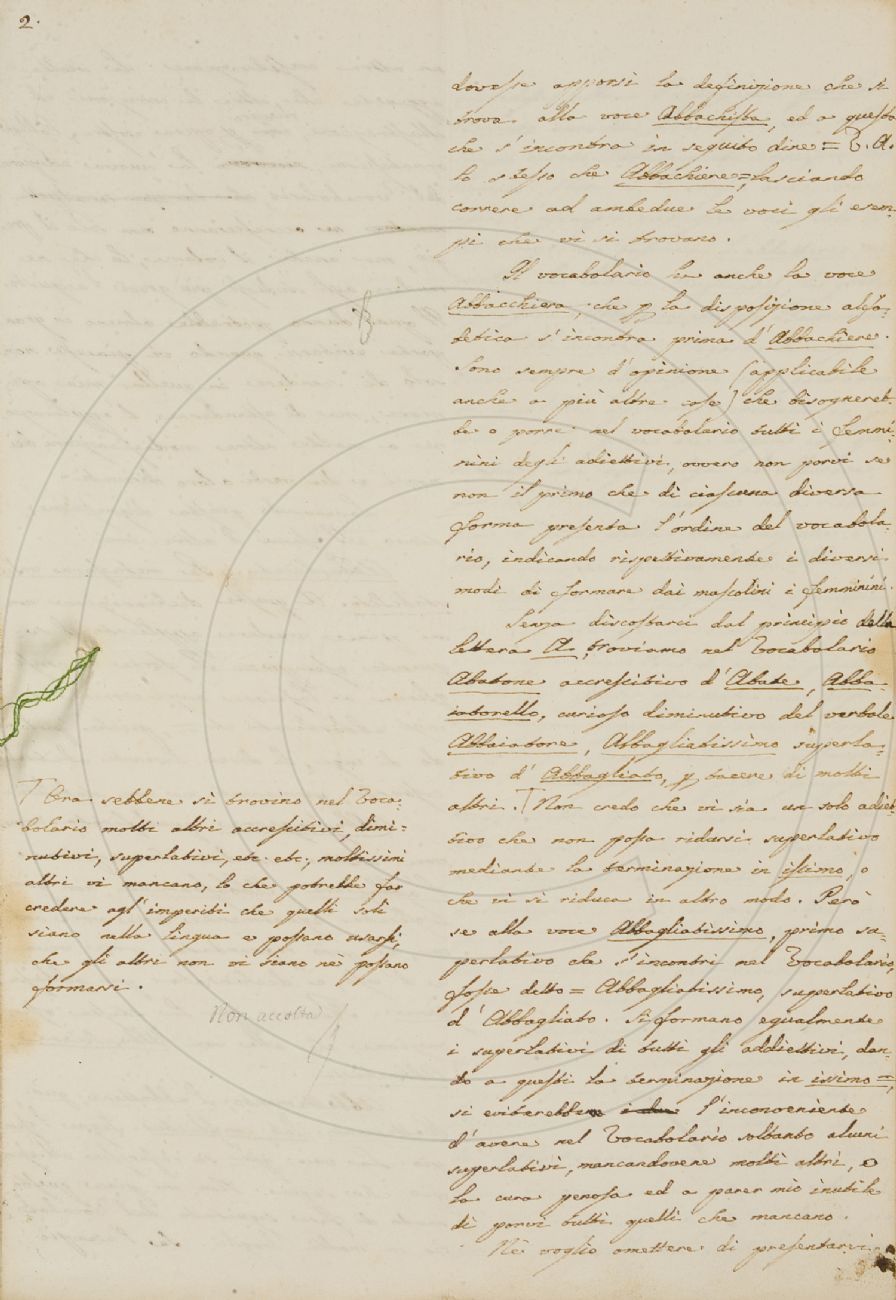 2.
dovesse apporsi la definizione che si
trova alla voce Abbachista, ed a questa
che s'incontra in seguito dire = V. A.
lo stesso che Abbachiere =, lasciando
correre ad ambedue le voci gli esem-
pi che vi si trovano.
Il vocabolario ha anche la voce
Abbacchiera, che p la disposizione alfa-
betica s'incontra prima d'Abbachiere.
Sono sempre d'opinione (applicabile
anche a più altre cose) che bisogneret-
be o porre nel vocabolario tutti i femmi-
nini degli adiettivi, ovvero non porvi se
non il primo che di ciascuna diversa
forma presenta l'ordine del vocabola-
rio, indicando rispettivamente i diversi
modi di formare dai mascolini i femminini.
Senza discostarci dal principio della
lettera A, troviamo nel Vocabolario
Abatone accrescitivo d'Abate, Abba-
iatorello, curioso diminutivo del verbale
Abbaiatore, Abbagliatissimo superla-
tivo d'Abbagliato, p tacere di molti
altri. T Non credo che vi sia un solo adiet-
tivo che non possa ridursi superlativo
mediante la terminazione in issimo, o
che vi si riduca in altro modo. Però
se alla voce Abbagliatissimo, primo su-
perlativo che s'incontri nel Vocabolario,
fosse detto = Abbagliatissimo, superlativo
d'Abbagliato. Si formano egualmente
i superlativi di tutti gli addiettivi, dan-
do a questi la terminazione in issimo =,
si eviterebbe l'inconveniente
d'avere nel Vocabolario soltanto alcuni
superlativi, mancandovene molti altri, o
la cura penosa ed a parer mio inutile
di porvi tutti quelli che mancano.
Nè voglio omettere di presentarvi
T Ora sebbene si trovino nel Voca-
bolario molti altri accrescitivi, dimi=
nutivi, superlativi, etc. etc., moltissimi
altri vi mancano, lo che potrebbe far
credere agl'imperiti che quelli soli
siano nella lingua e possano usarsi,
che gli altri non vi siano nè possano
formarsi.
Non accolta